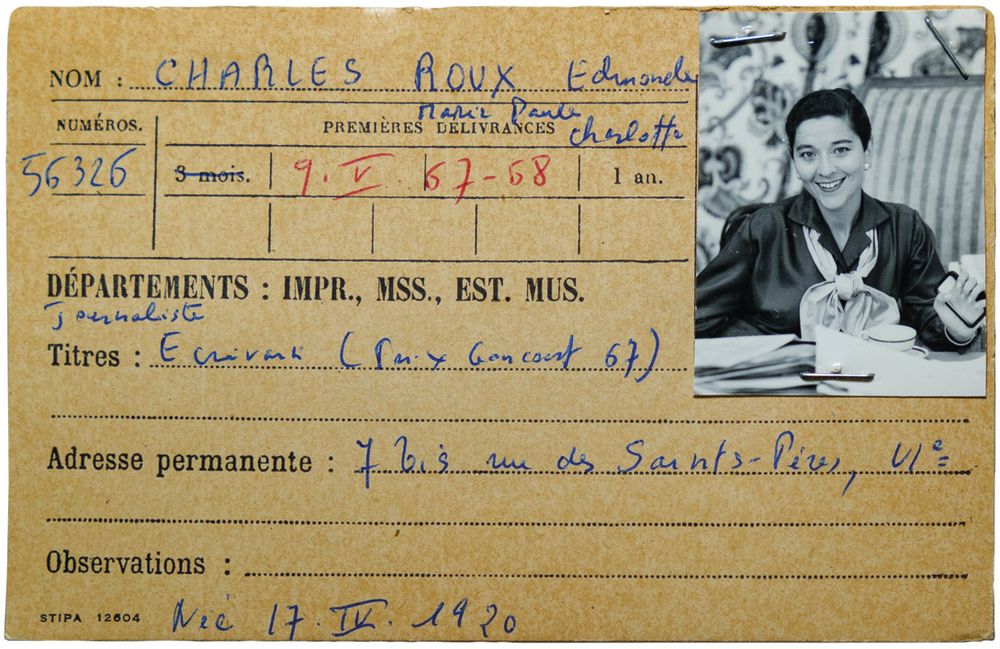 NOM : CHARLES ROUX Edmonde
Marie Paule
Charlotte
NUMÉROS. PREMIÈRES DÉLIVRANCES
56326 3 mois. 9. V. 67-68 1 an.
DÉPARTEMENTS : IMPR., MSS., EST. MUS.
journaliste
Titres : Ecrivain (Prix Goncourt 67)
Adresse permanente : 7 bis rue des Saints-Pères, VIe
Observations :
STIPA 12604 Née 17. IV. 1920